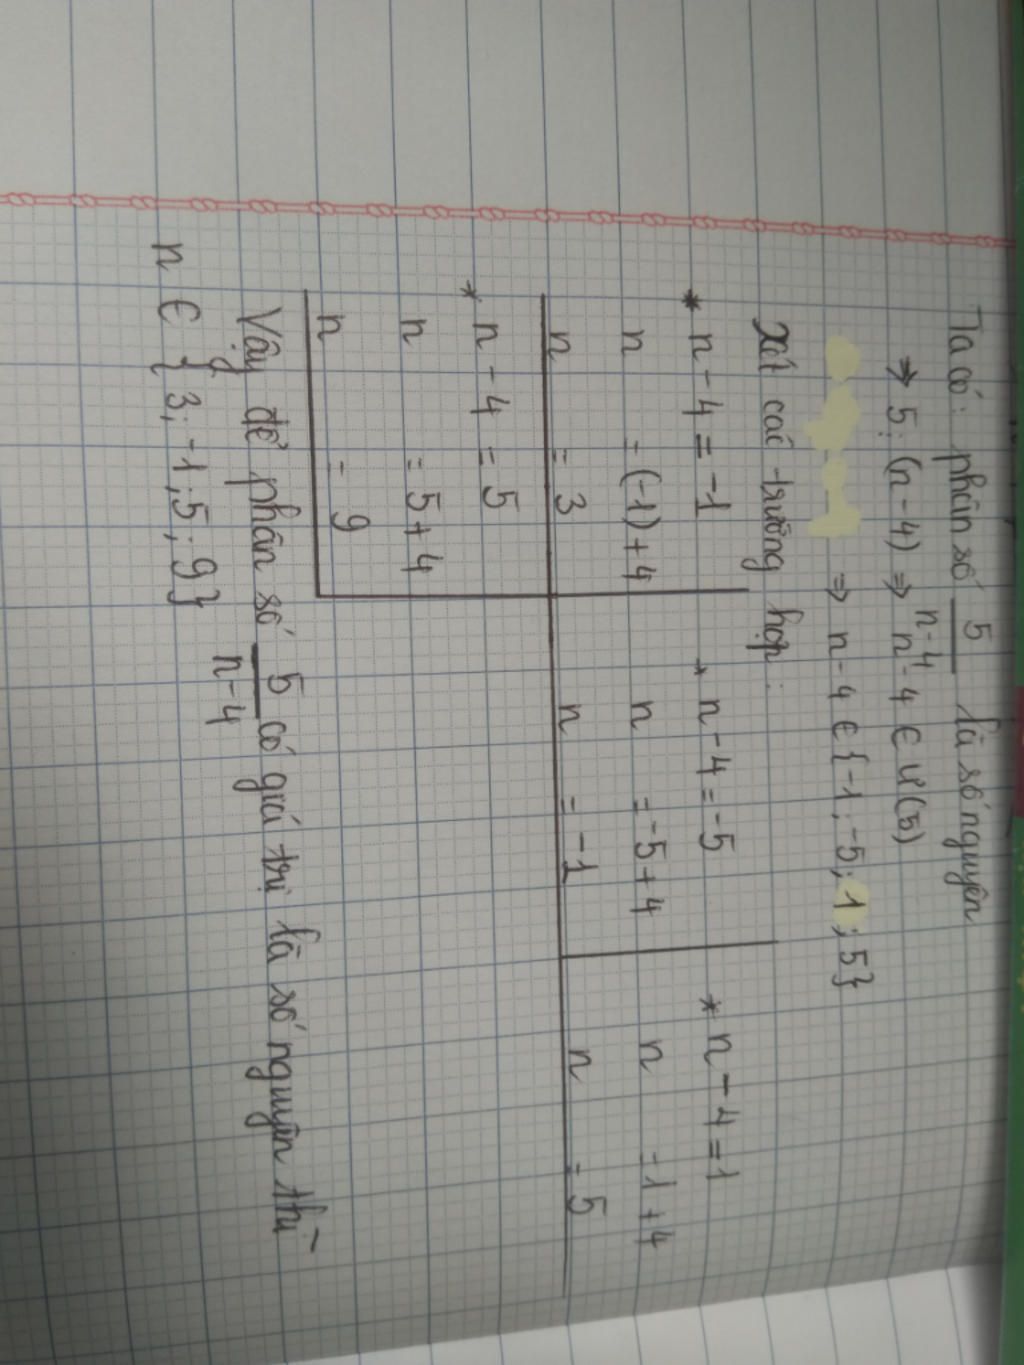 Ta có: phân số 5/n-4 là số nguyên
⇒ 5 ⋮ (n-4) ⇒ n-4 ∈ Ư(5)
⇒ n-4 ∈ {-1; -5; 1; 5}
Xét các trường hợp:
* n-4 = -1
n = (-1)+4
n = 3
* n-4 = -5
n = -5+4
n = -1
* n-4 = 1
n = 1+4
n = 5
* n-4 = 5
n = 5+4
n = 9
Vậy để phân số 5/n-4 có giá trị là số nguyên thì
n ∈ {3; -1; 5; 9}